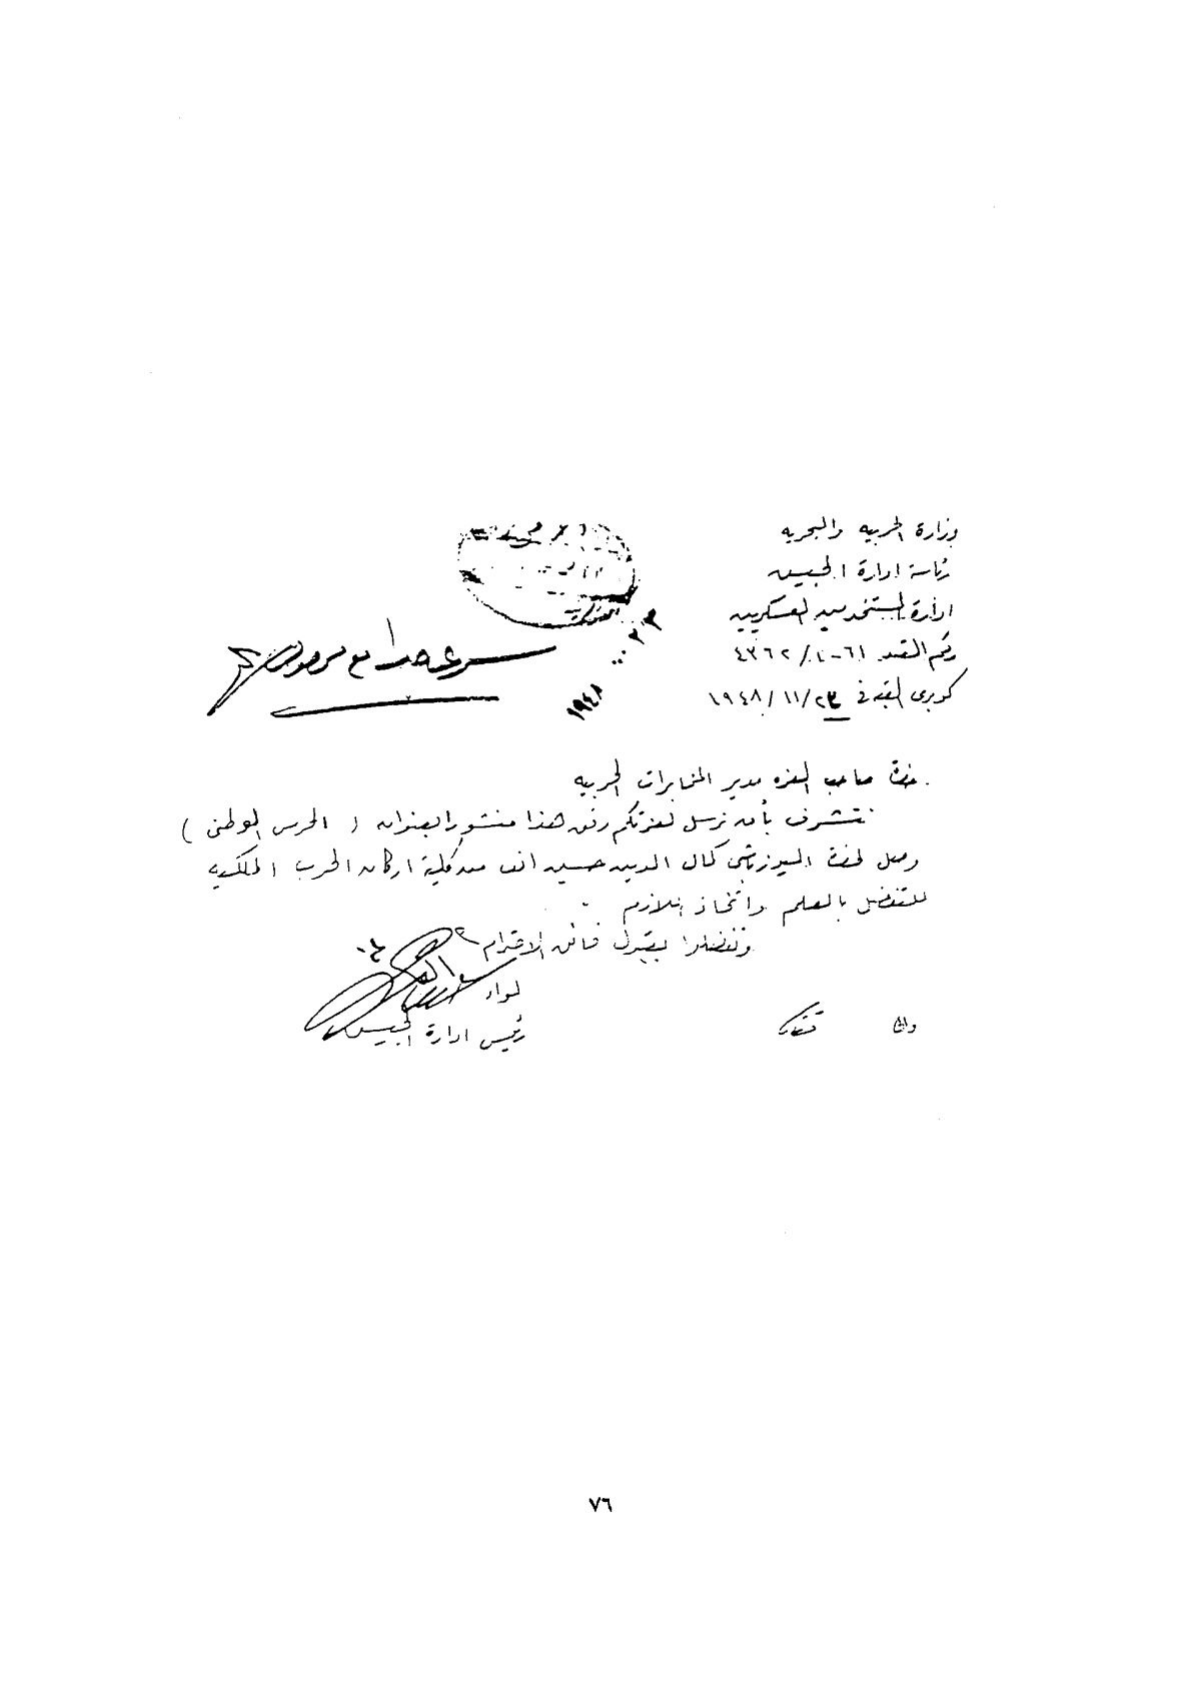 وزارة الحربيه والبحريه
رئاسة ادارة الجيش
ادارة المستخدمين العسكريين
رقم القيد ٦١-٤/٤٣٦٢
كوبرى القبه فى ٢٣/١١/١٩٤٨
٢٣
١٩٤٨
حضرة صاحب العزه مدير المخابرات الحربيه
نتشرف بأن نرسل لعزتكم رفق هذا منشور بعنوان ( الحرس الوطنى )
وصل لحضرة اليوزباشى كمال الدين حسين افندى من كلية اركان الحرب الملكيه
للتفضل بالعلم واتخاذ اللازم
وتفضلوا بقبول فائق الاحترام
لواء
رئيس ادارة الجيش
٧٦